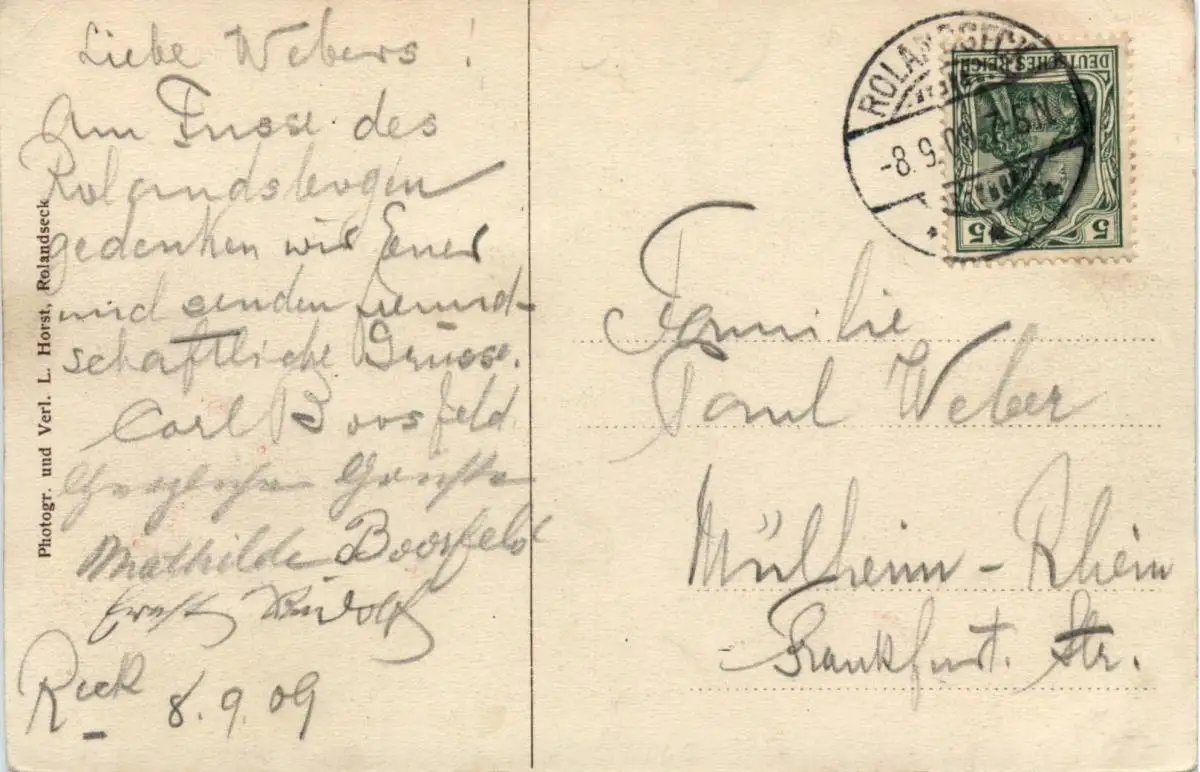 Liebe Webers!
Am Fusse des
Rolandsbogen
gedenken wir Euer
und senden freund-
schaftliche Grüsse.
Carl Boosfeld
Herzlichen
Mathilde Boosfeld
Ernst Rudolf
8.9.09
Photogr. und Verl. L. Horst, Rolandseck
ROLANDSECK
-8.9.09. 7-8N
DEUTSCHES REICH
5 5
Familie
Paul Weber
Mülheim-Rhein
Frankfurt. Str.